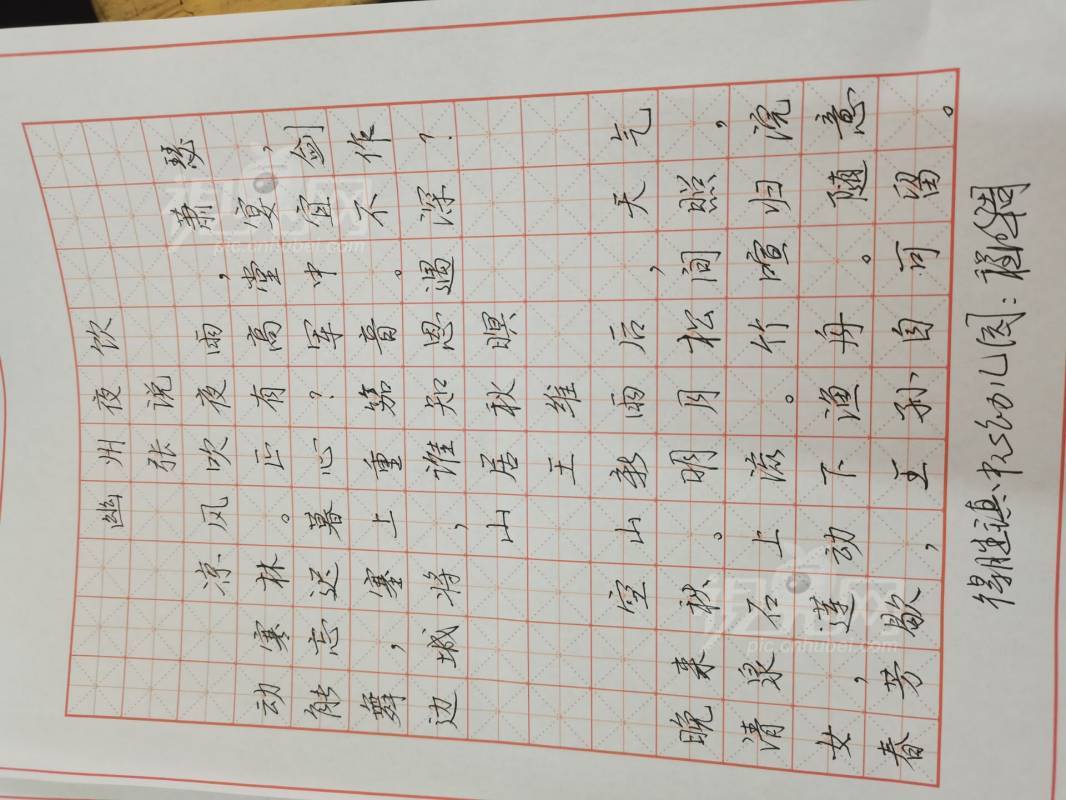 幽州夜饮
张说
凉风吹夜雨，萧瑟
动寒林。正有高堂宴，
能忘迟暮心？军中宜剑
舞，塞上重笳音。不作
边城将，谁知恩遇深？
山居秋暝
王维
空山新雨后，天气
晚来秋。明月松间照，
清泉石上流。竹喧归浣
女，莲动下渔舟。随意
春芳歇，王孙自可留。
得胜镇中心幼儿园：
pic.cnhubei.com
pic.cnhubei.com